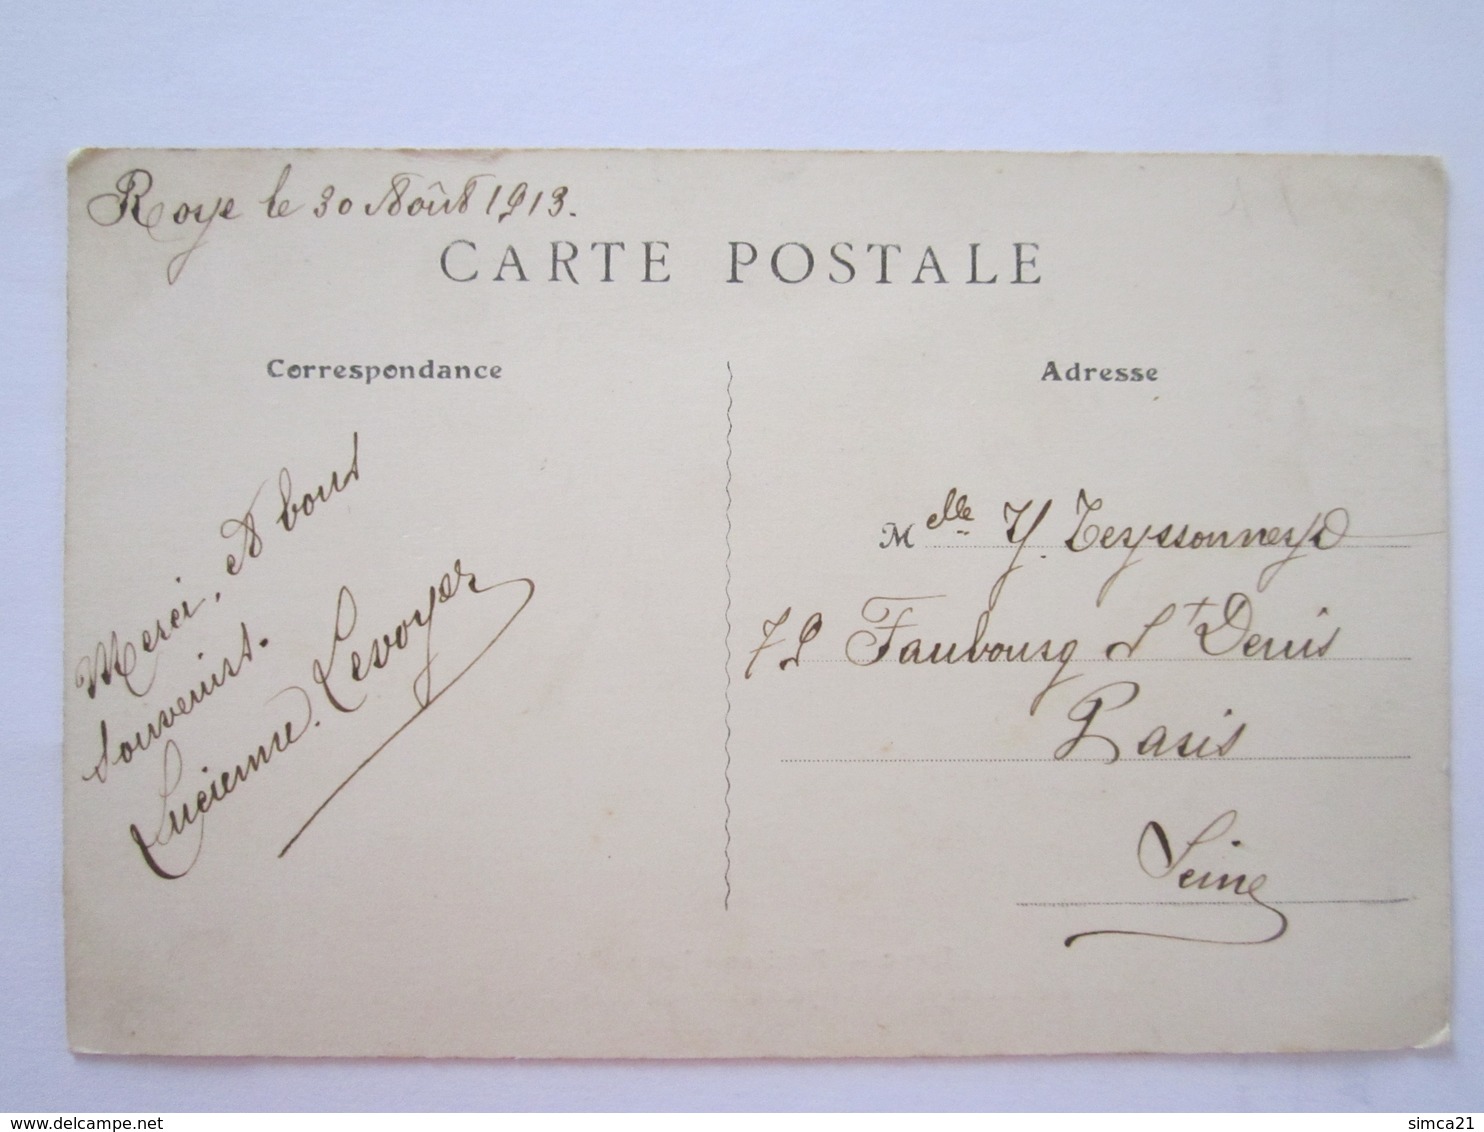 Roye le 30 Août 1913.
CARTE POSTALE
Correspondance
Merci, et bons
souvenirs.
Lucienne Levoyer
Adresse
Melle Y. Teyssonneyd
79 Faubourg St Denis
Paris
Seine
www.delcampe.net
simca21